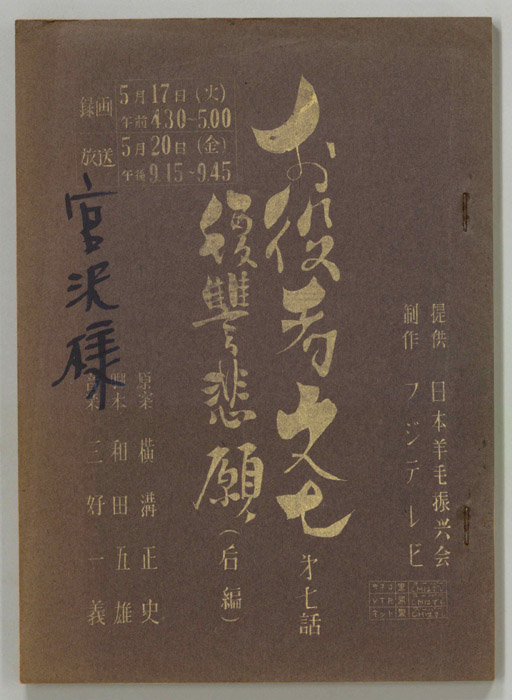 提供 日本羊毛振兴会
制作 フジテレビ
お役者文七 才七話
復讐悲願(后編)
録画 5月17日(火)
午前 4.30~5.00
放送 5月20日(金)
午後 9.15~9.45
宮沢様
原案 横溝正史
脚本 和田五雄
音楽 三好一義